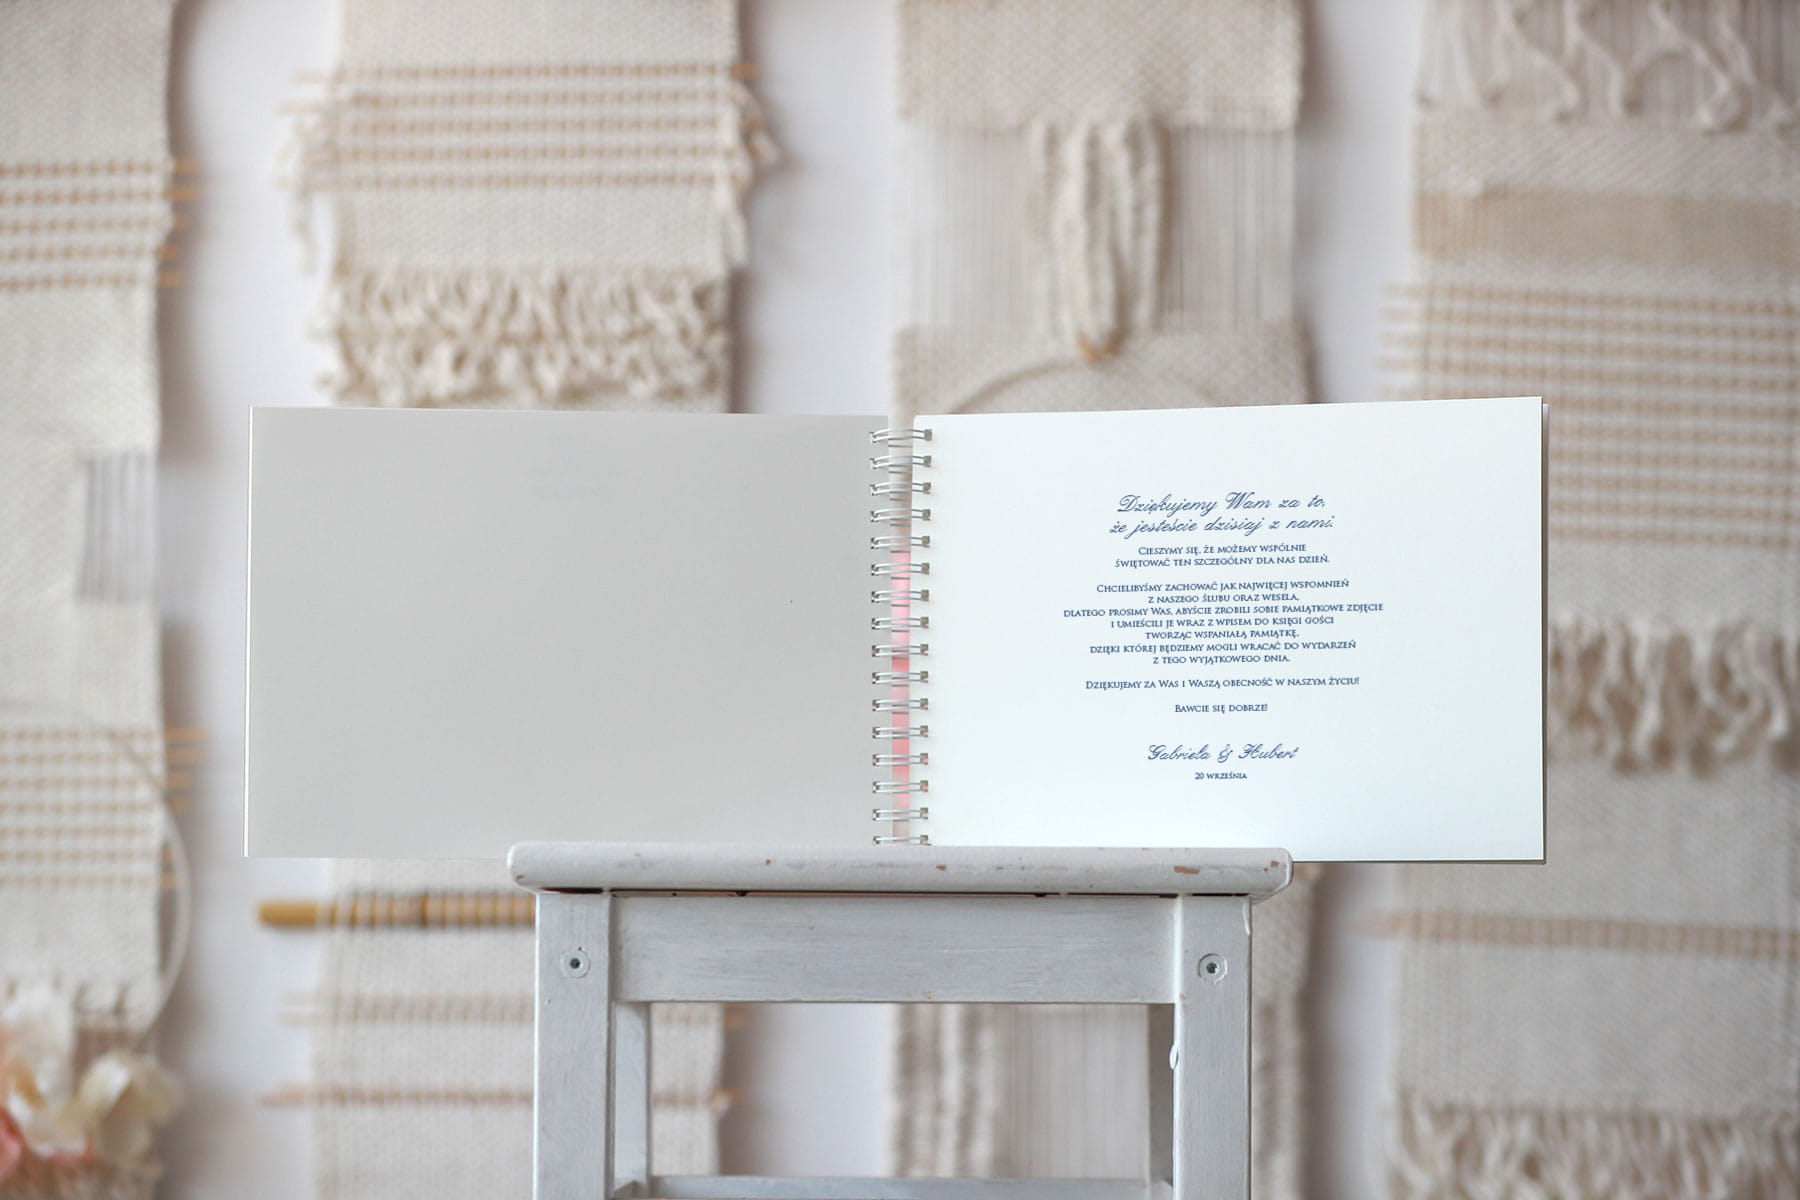 Dziękujemy Wam za to,
że jesteście dzisiaj z nami.
Cieszymy się, że możemy wspólnie
świętować ten szczególny dla nas dzień.
Chcielibyśmy zachować jak najwięcej wspomnień
z naszego ślubu oraz wesela,
dlatego prosimy Was, abyście zrobili sobie pamiątkowe zdjęcie
i umieścili je wraz z wpisem do księgi gości
tworząc wspaniałą pamiątkę,
dzięki której będziemy mogli wracać do wydarzeń
z tego wyjątkowego dnia.
Dziękujemy za Was i Waszą obecność w naszym życiu!
Bawcie się dobrze!
Gabriela & Hubert
20 września